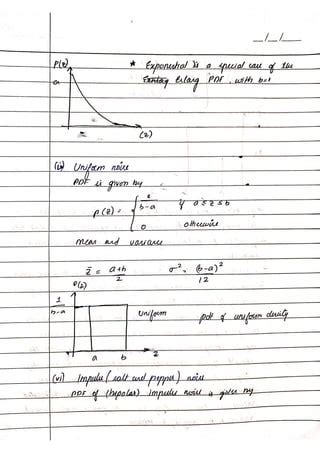 __/__/____
P(z)
a
★ Exponential is a special case of the
Erlang PDF, with b=1
(z)
(v) Uniform noise
PDF is given by
p(z) = { 1/b-a if a ≤ z ≤ b
0 otherwise
mean and variance
z̄ = a+b/2 σ² = (b-a)²/12
P(z)
1/b-a
Uniform
pdf of uniform density
a b z
(vi) Impulse (salt and pepper) noise
PDF of (bipolar) impulse noise is given by